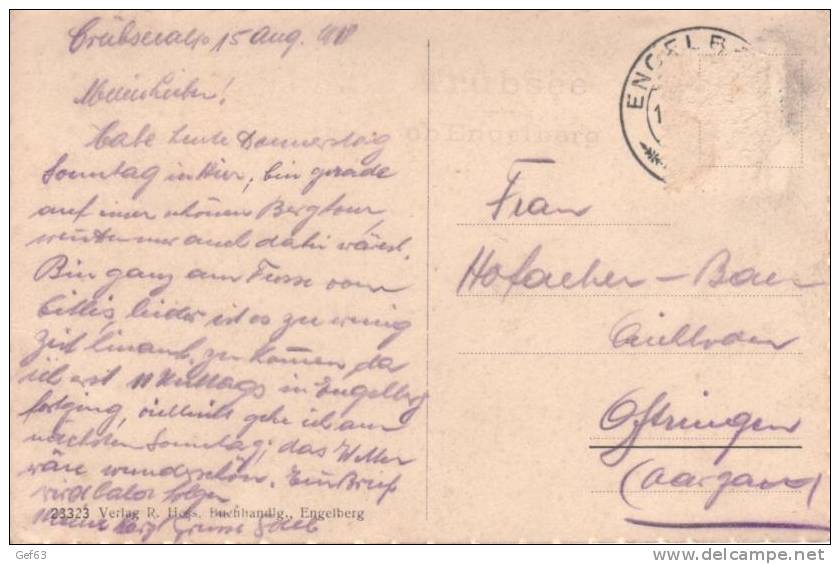 Trübsee
ob Engelberg
ENGELB
1
Trübseealp 15 Aug.
Mein Lieber!
Habe heute Donnerstag
Sonntag in Hier, bin gerade
auf einer schönen Bergtour,
wenn nur auch dahir wärest.
Bin ganz am Fusse vom
Titlis, leider ist es zu wenig
Zeit hinauf zu können, da
ich erst 11 Mittags in Engelberg
fortging, vielleicht gehe ich am
nächsten Sonntag, das Wetter
wäre wunderschön. Ein Brief
wird bald folgen
Meine herzl Grüsse
Frau
Hofacher - Baer
Aeschboden
Oftringen
(Aargau)
23323 Verlag R. Hess. Buchhandlg., Engelberg
Gef63
www.delcampe.net